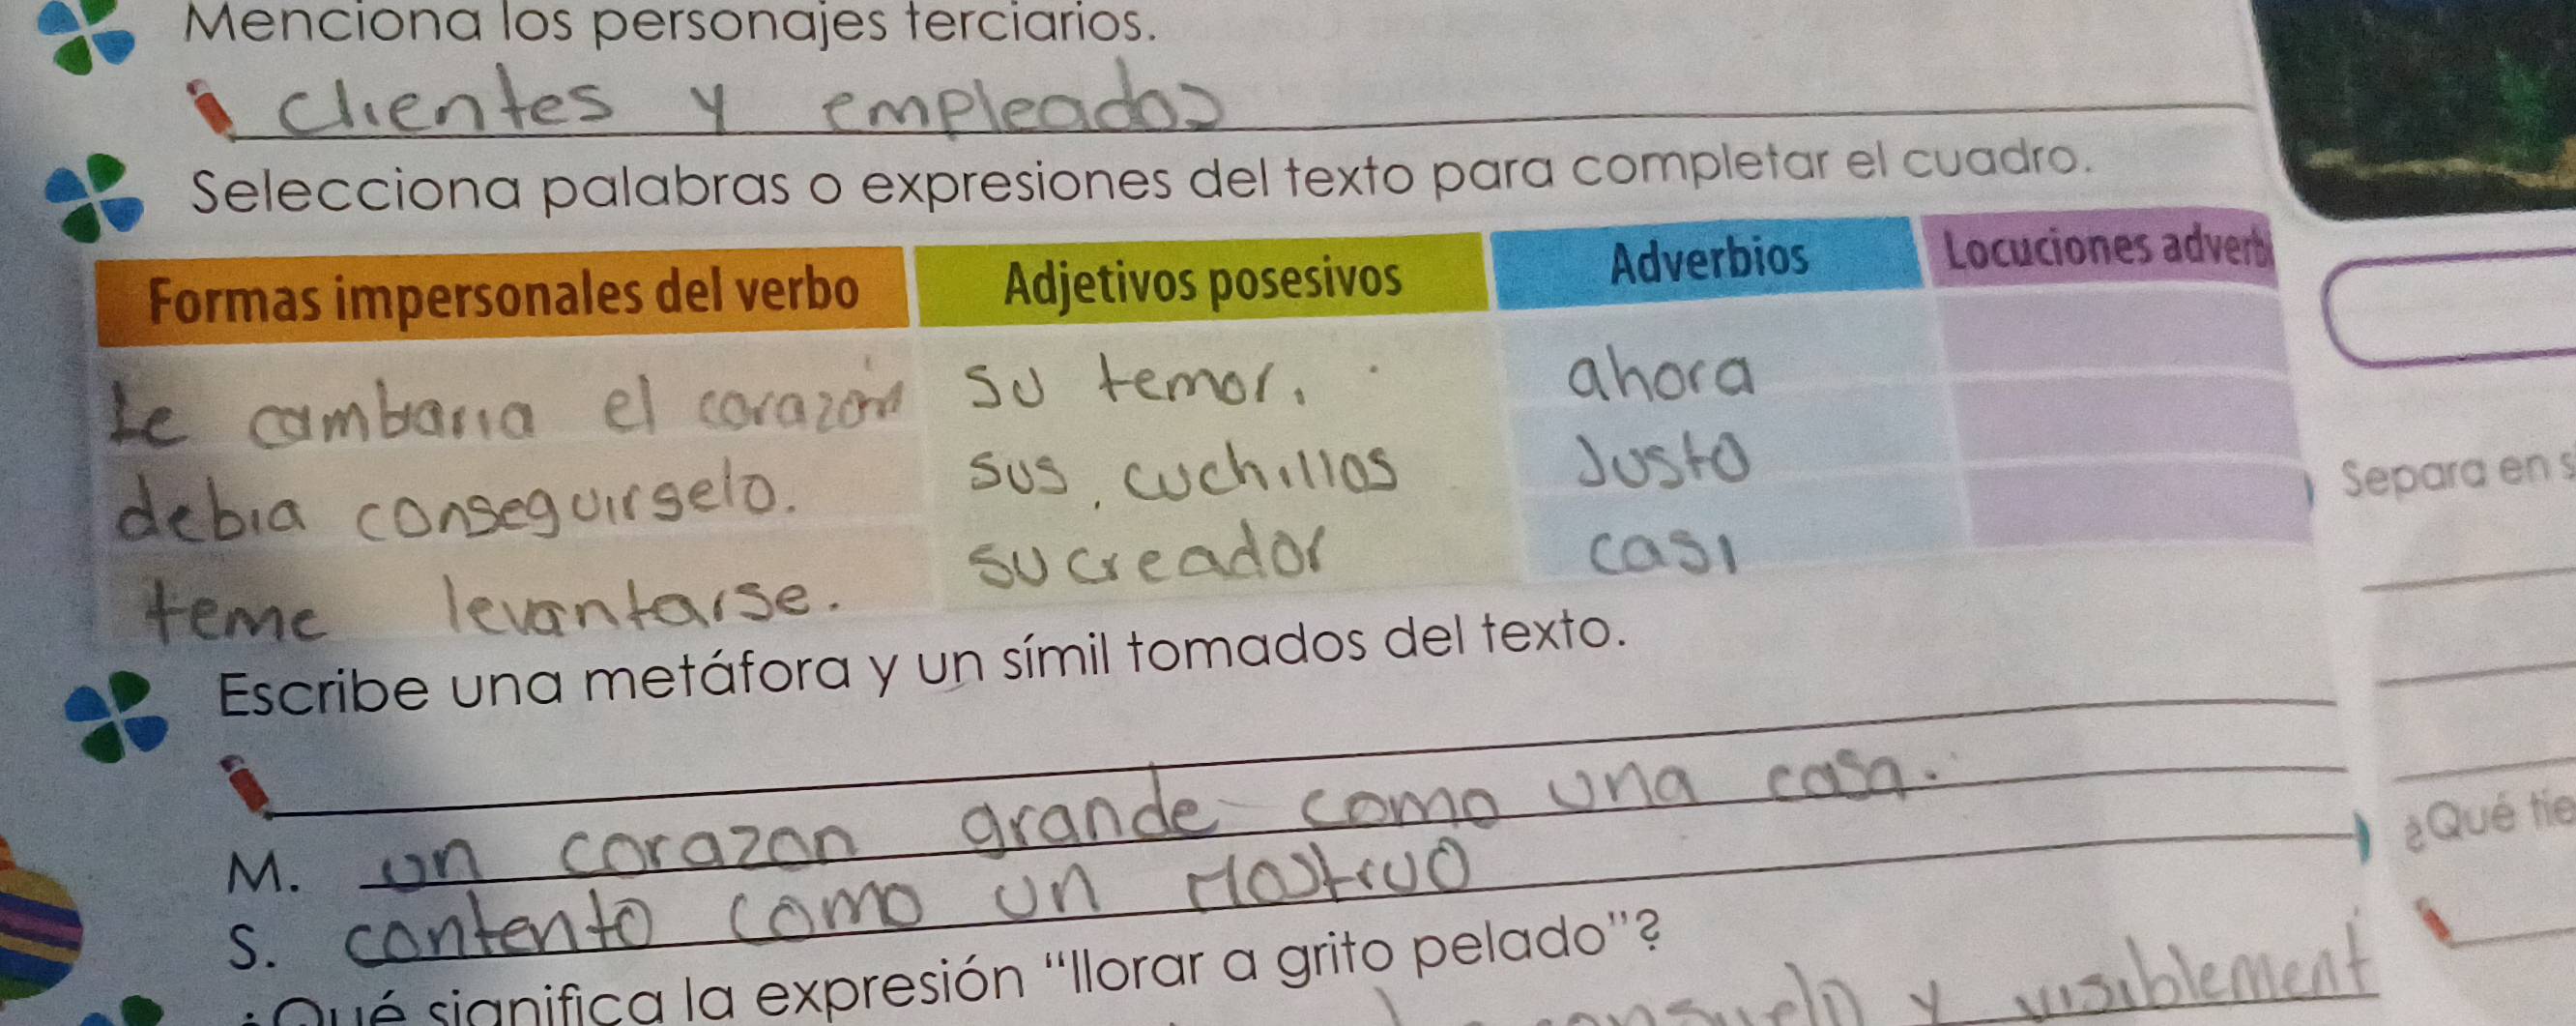 Menciona los personajes terciarios.
clientes y empleados
Selecciona palabras o expresiones del texto para completar el cuadro.
Formas impersonales del verbo Adjetivos posesivos Adverbios Locuciones adverbi
Le cambaria el corazon su temor. ahora
debia conseguirselo. sus cuchillos Justo
teme levantarse. su creador casi
Separa en s
Escribe una metáfora y un símil tomados del texto.
M. un corazon grande como una casa.
¿Qué tie
S. contento como un Mostruo
¿Qué significa la expresión "llorar a grito pelado"?
y visiblement